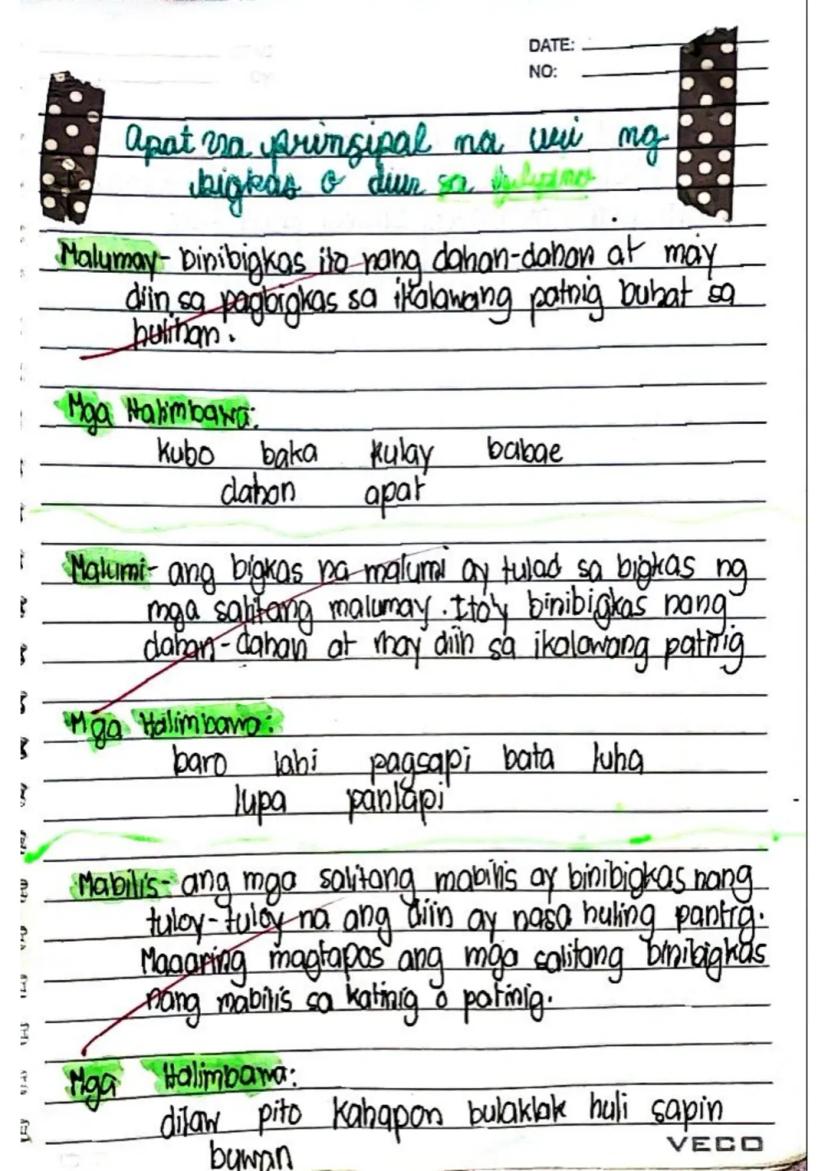 DATE:
NO:
Apat na prinsipal na uri ng
bigkas o diin sa Filipino
Malumay- binibigkas ito nang dahan-dahan at may
diin sa pagbigkas sa ikalawang patnig buhat sa
hulihan.
Mga Halimbawa:
kubo baka kulay babae
dahon apat
Malumi- ang bigkas na malumi ay tulad sa bigkas ng
mga salitang malumay. Ito'y binibigkas nang
dahan-dahan at may diin sa ikalawang patnig
Mga Halimbawa:
baro lahi pagsapi bata luha
lupa panlapi
Mabilis- ang mga salitang mabilis ay binibigkas nang
tuloy-tuloy na ang diin ay nasa huling pantig.
Maaaring magtapos ang mga salitang binibigkas
nang mabilis sa katinig o patinig.
Mga Halimbawa:
dilaw pito kahapon bulaklak huli sapin
buwan
VECO